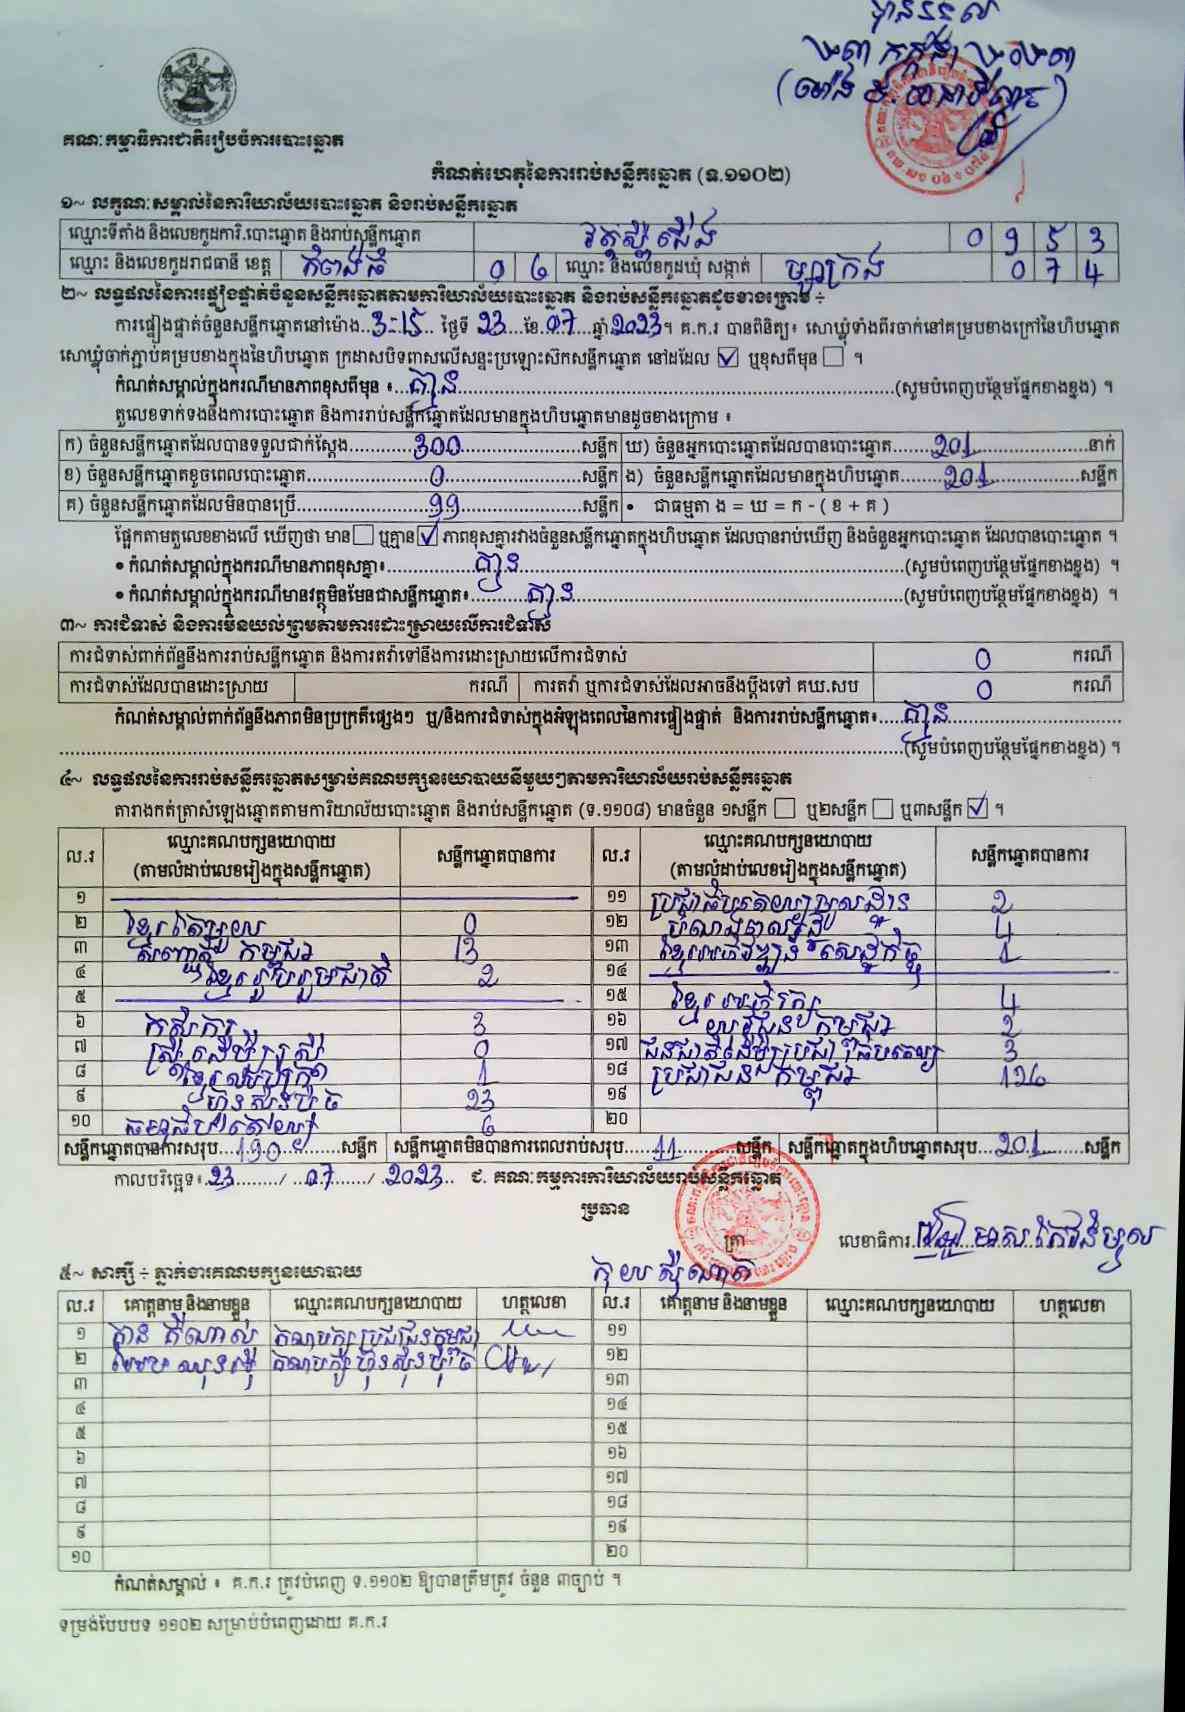 បានទទួល
២៣ កក្កដា ២០២៣
គណៈកម្មាធិការជាតិរៀបចំការបោះឆ្នោត
កំណត់ហេតុនៃការរាប់សន្លឹកឆ្នោត (ទ.១១០២)
១~ លក្ខណៈសម្គាល់នៃការិយាល័យបោះឆ្នោត និងរាប់សន្លឹកឆ្នោត
ឈ្មោះទីតាំង និងលេខកូដការិ.បោះឆ្នោត និងរាប់សន្លឹកឆ្នោត វត្តស្ពឺជើង 0 9 5 3
ឈ្មោះ និងលេខកូដរាជធានី ខេត្ត កំពង់ធំ 0 6 ឈ្មោះ និងលេខកូដឃុំ សង្កាត់ ម្សាក្រង 0 7 4
២~ លទ្ធផលនៃការផ្ទៀងផ្ទាត់ចំនួនសន្លឹកឆ្នោតតាមការិយាល័យបោះឆ្នោត និងរាប់សន្លឹកឆ្នោតដូចខាងក្រោម ÷
ការផ្ទៀងផ្ទាត់ចំនួនសន្លឹកឆ្នោតនៅម៉ោង 3-15 ថ្ងៃទី 23 ខែ 07 ឆ្នាំ 2023។ គ.ក.រ បានពិនិត្យ៖ សោឃ្លុំទាំងពីរចាក់នៅគម្របខាងក្រៅនៃហិបឆ្នោត
សោឃ្លុំចាក់ភ្ជាប់គម្របខាងក្នុងនៃហិបឆ្នោត ក្រដាសបិទពាសលើសន្ទះប្រឡោះស៊កសន្លឹកឆ្នោត នៅដដែល ☑ ឬខុសពីមុន ☐ ។
កំណត់សម្គាល់ក្នុងករណីមានភាពខុសពីមុន ៖ គ្មាន (សូមបំពេញបន្ថែមផ្នែកខាងខ្នង) ។
តួលេខទាក់ទងនឹងការបោះឆ្នោត និងការរាប់សន្លឹកឆ្នោតដែលមានក្នុងហិបឆ្នោតមានដូចខាងក្រោម ៖
ក) ចំនួនសន្លឹកឆ្នោតដែលបានទទួលជាក់ស្តែង 300 សន្លឹក ឃ) ចំនួនអ្នកបោះឆ្នោតដែលបានបោះឆ្នោត 201 នាក់
ខ) ចំនួនសន្លឹកឆ្នោតខូចពេលបោះឆ្នោត 0 សន្លឹក ង) ចំនួនសន្លឹកឆ្នោតដែលមានក្នុងហិបឆ្នោត 201 សន្លឹក
គ) ចំនួនសន្លឹកឆ្នោតដែលមិនបានប្រើ 99 សន្លឹក • ជាធម្មតា ង = ឃ = ក - ( ខ + គ )
ផ្អែកតាមតួលេខខាងលើ ឃើញថា មាន ☐ ឬគ្មាន ☑ ភាពខុសគ្នារវាងចំនួនសន្លឹកឆ្នោតក្នុងហិបឆ្នោត ដែលបានរាប់ឃើញ និងចំនួនអ្នកបោះឆ្នោត ដែលបានបោះឆ្នោត ។
• កំណត់សម្គាល់ក្នុងករណីមានភាពខុសគ្នា៖ គ្មាន (សូមបំពេញបន្ថែមផ្នែកខាងខ្នង) ។
• កំណត់សម្គាល់ក្នុងករណីមានវត្ថុមិនមែនជាសន្លឹកឆ្នោត៖ គ្មាន (សូមបំពេញបន្ថែមផ្នែកខាងខ្នង) ។
៣~ ការជំទាស់ និងការមិនយល់ព្រមតាមការដោះស្រាយលើការជំទាស់
ការជំទាស់ពាក់ព័ន្ធនឹងការរាប់សន្លឹកឆ្នោត និងការតវ៉ាទៅនឹងការដោះស្រាយលើការជំទាស់ 0 ករណី
ការជំទាស់ដែលបានដោះស្រាយ ករណី ការតវ៉ា ឬការជំទាស់ដែលអាចនឹងប្តឹងទៅ គឃ.សប 0 ករណី
កំណត់សម្គាល់ពាក់ព័ន្ធនឹងភាពមិនប្រក្រតីផ្សេងៗ ឬ/និងការជំទាស់ក្នុងអំឡុងពេលនៃការផ្ទៀងផ្ទាត់ និងការរាប់សន្លឹកឆ្នោត៖ គ្មាន
(សូមបំពេញបន្ថែមផ្នែកខាងខ្នង) ។
៤~ លទ្ធផលនៃការរាប់សន្លឹកឆ្នោតសម្រាប់គណបក្សនយោបាយនីមួយៗតាមការិយាល័យរាប់សន្លឹកឆ្នោត
តារាងកត់ត្រាសំឡេងឆ្នោតតាមការិយាល័យបោះឆ្នោត និងរាប់សន្លឹកឆ្នោត (ទ.១១០៨) មានចំនួន ១សន្លឹក ☐ ឬ២សន្លឹក ☐ ឬ៣សន្លឹក ☑ ។
ល.រ ឈ្មោះគណបក្សនយោបាយ (តាមលំដាប់លេខរៀងក្នុងសន្លឹកឆ្នោត) សន្លឹកឆ្នោតបានការ ល.រ ឈ្មោះគណបក្សនយោបាយ (តាមលំដាប់លេខរៀងក្នុងសន្លឹកឆ្នោត) សន្លឹកឆ្នោតបានការ
១ ១១ ប្រជាធិបតេយ្យមូលដ្ឋាន 2
២ ខ្មែរតែមួយ 0 ១២ បំលាស់ពលរដ្ឋ 4
៣ សញ្ជាតិ កម្ពុជា 13 ១៣ ខ្មែរអភិវឌ្ឍន៍ សេដ្ឋកិច្ច 1
៤ ខ្មែររួបរួមជាតិ 2 ១៤
៥ ១៥ ខ្មែរអភិរក្ស 4
៦ កសិករ 3 ១៦ យុវជនកម្ពុជា 2
៧ ស្ត្រីដើម្បីស្ត្រី 0 ១៧ ជនជាតិដើមប្រជាធិបតេយ្យ 3
៨ ខ្មែរឈប់ក្រ 1 ១៨ ប្រជាជនកម្ពុជា 126
៩ ហ៊្វុនស៊ិនប៉ិច 23 ១៩
១០ ធម្មាធិបតេយ្យ 6 20
សន្លឹកឆ្នោតបានការសរុប 190 សន្លឹក សន្លឹកឆ្នោតមិនបានការពេលរាប់សរុប 11 សន្លឹក សន្លឹកឆ្នោតក្នុងហិបឆ្នោតសរុប 201 សន្លឹក
កាលបរិច្ឆេទ៖ 23 / 07 / 2023 ជ. គណៈកម្មការការិយាល័យរាប់សន្លឹកឆ្នោត
ប្រធាន
ត្រា លេខាធិការ
៥~ សាក្សី ÷ ភ្នាក់ងារគណបក្សនយោបាយ
ល.រ គោត្តនាម និងនាមខ្លួន ឈ្មោះគណបក្សនយោបាយ ហត្ថលេខា ល.រ គោត្តនាម និងនាមខ្លួន ឈ្មោះគណបក្សនយោបាយ ហត្ថលេខា
១ គណបក្សប្រជាជនកម្ពុជា ១១
២ គណបក្សហ៊្វុនស៊ិនប៉ិច ១២
៣ ១៣
៤ ១៤
៥ ១៥
៦ ១៦
៧ ១៧
៨ ១៨
៩ ១៩
១០ 20
កំណត់សម្គាល់ ៖ គ.ក.រ ត្រូវបំពេញ ទ.១១០២ ឱ្យបានត្រឹមត្រូវ ចំនួន ៣ច្បាប់ ។
ទម្រង់បែបបទ ១១០២ សម្រាប់បំពេញដោយ គ.ក.រ